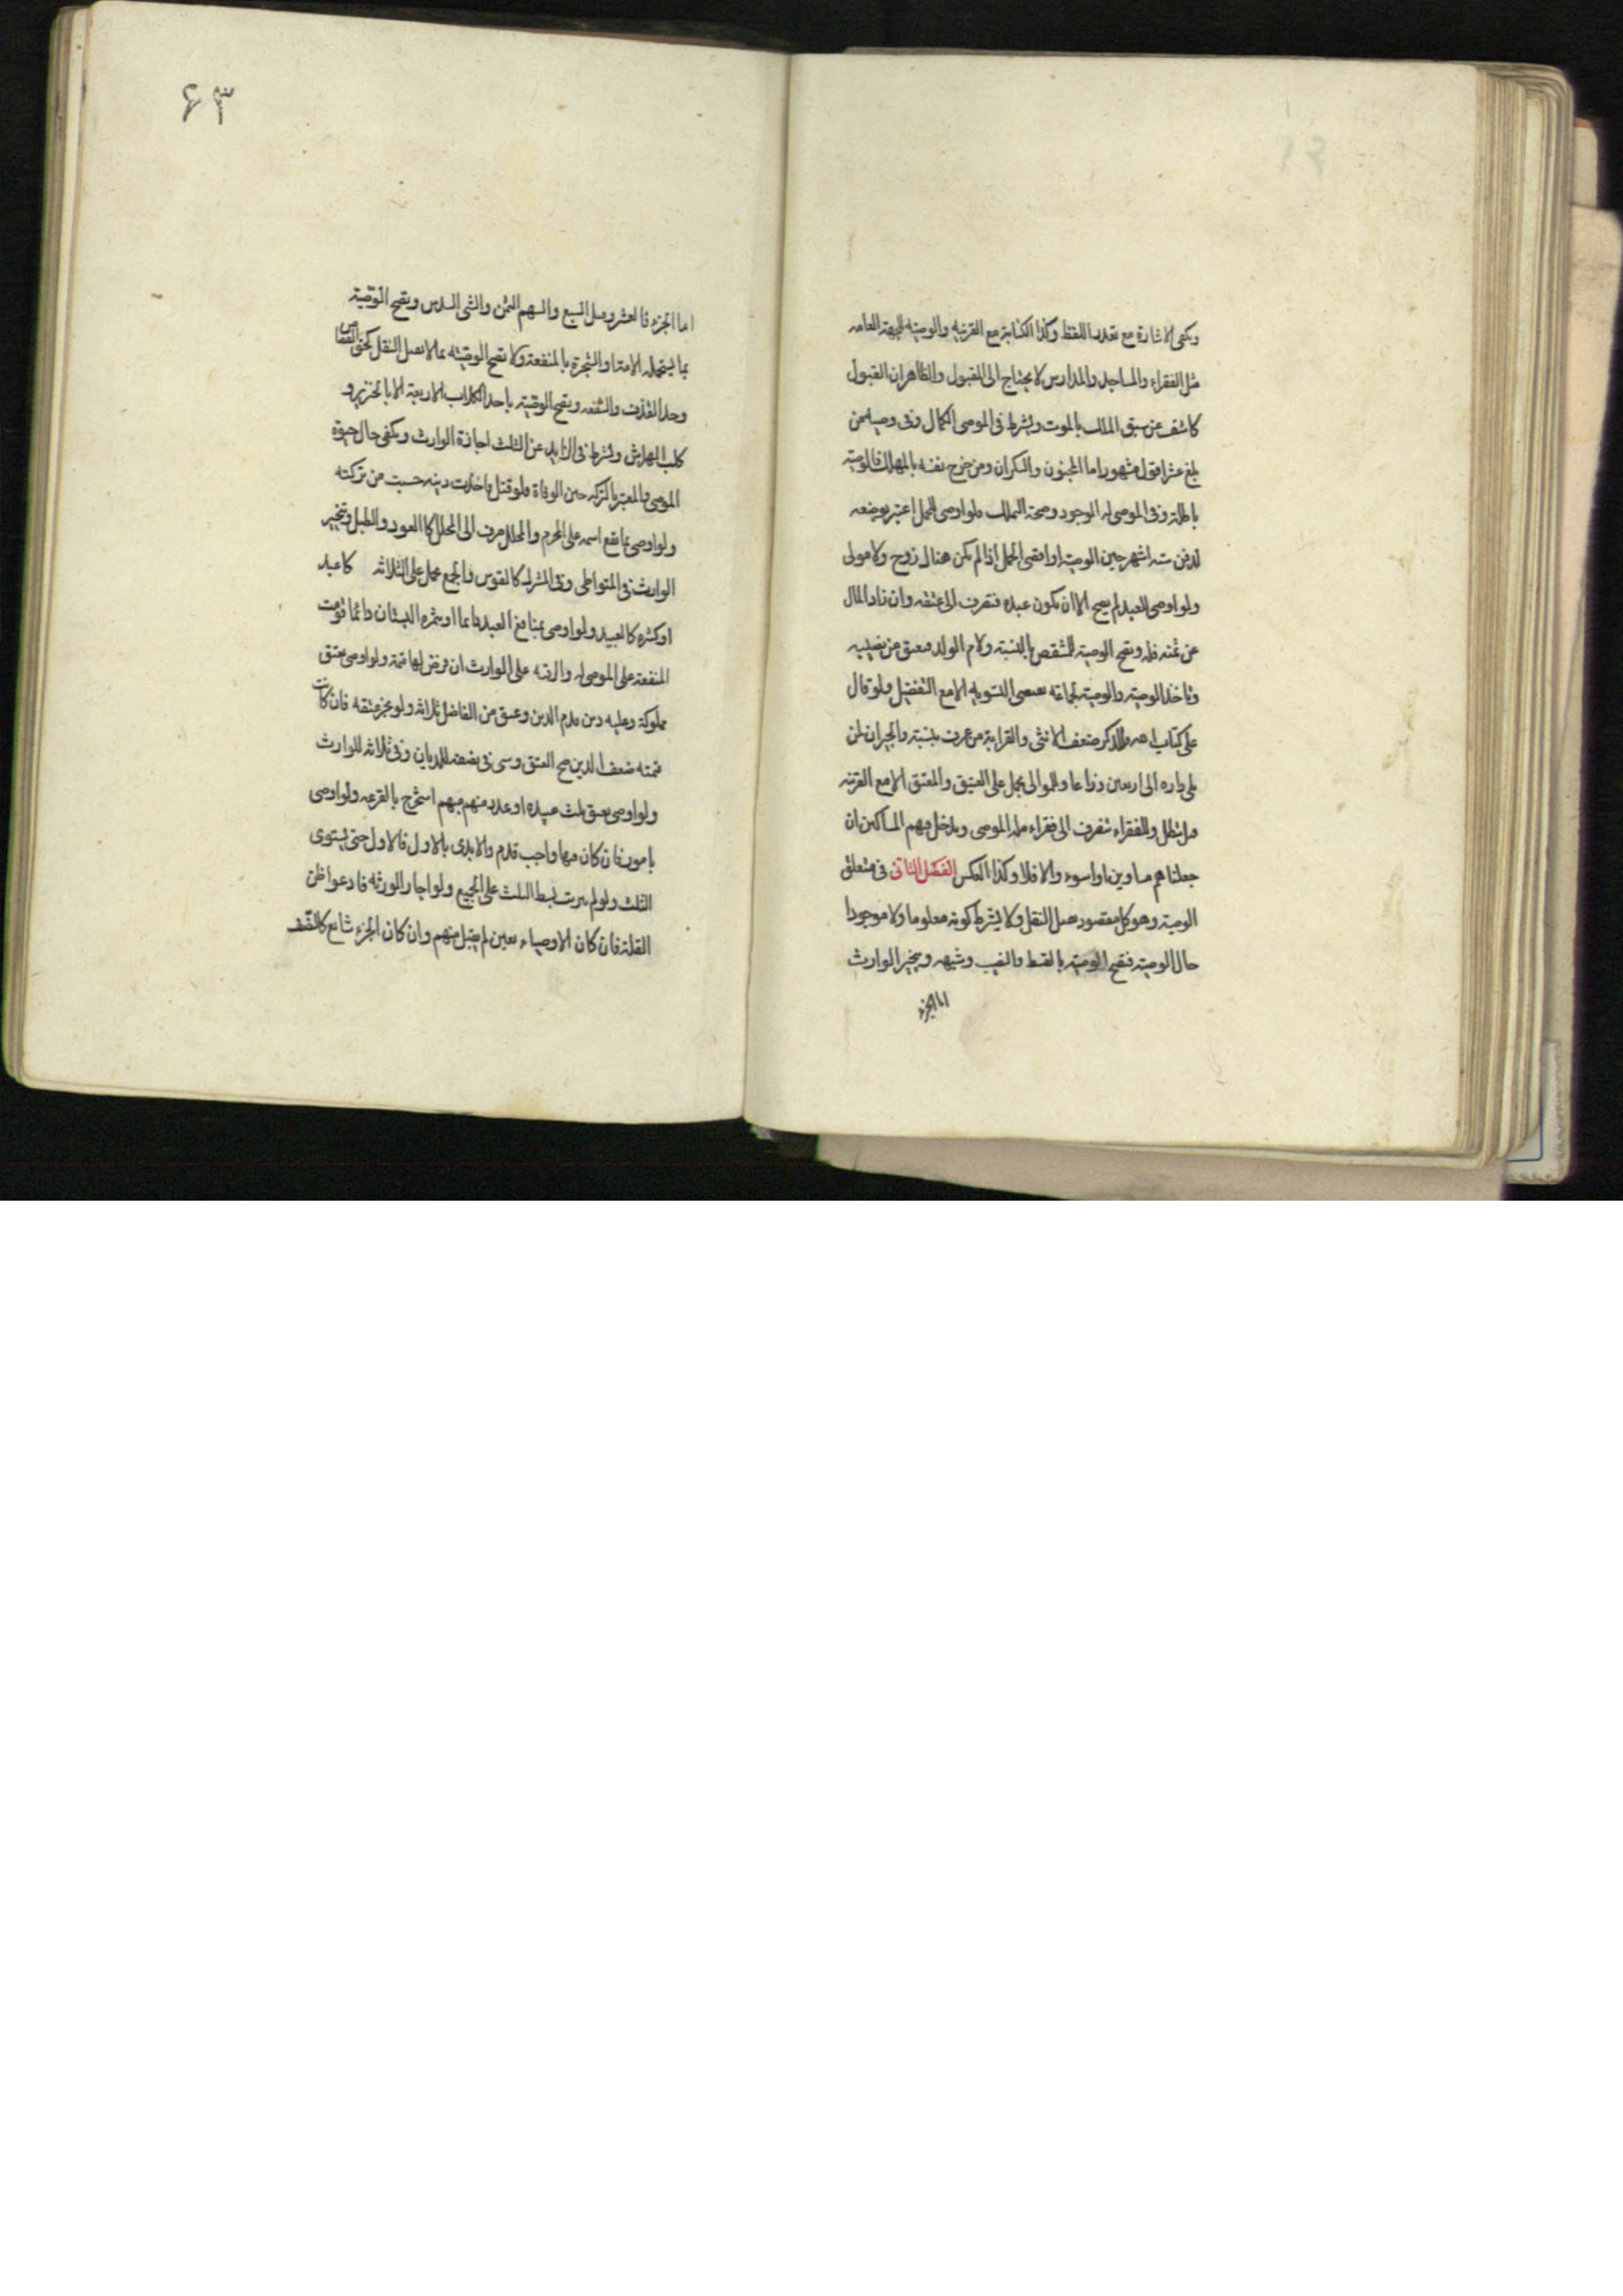 ويكفى الاشارة مع تعذر اللفظ وكذا الكتابة مع القرينه والوصيه للجهة العامه
مثل الفقراء والمساجد والمدارس لا يحتاج الى القبول والظاهر ان القبول
كاشف عن سبق الملك بالموت ويشترط فى الموصى الكمال وفى وصيه من
بلغ عشرا قول مشهور اما المجنون والسكران ومن جرح نفسه بالمهلك فالوصية
باطلة وفى الموصى له الوجود وصحة التملك ولو اوصى للحمل اعتبر بوضعه
لدون ستة اشهر حين الوصية او اقصى الحمل اذا لم يكن هناك زوج ولا مولى
ولو اوصى للعبد لم يصح الا ان يكون عبده فتصرف الى عتقه وان زاد المال
عن ثمنه فله وتصح الوصية للشقص بالنسبة ولام الولد فتعتق من نصيبه
وتاخذ الوصية والوصية لجماعة تقتضى التسويه الا مع التفضيل ولو قال
على كتاب الله فللذكر ضعف الانثى والقرابة من عرف بنسبة والجيران لمن
يلى داره الى اربعين ذراعا وللموالى يحمل على العتيق والمعتق الا مع القرينه
وقيل تبطل وللفقراء تنصرف الى فقراء ملة الموصى ويدخل فيهم المساكين ان
جعلناهم مساوين او اسوء والا فلا وكذا العكس الفصل الثانى فى متعلق
الوصية وهو كل مقصود يقبل النقل ولا يشترط كونه معلوما ولا موجودا
حال الوصية فتصح الوصية بالقسط والنصيب وشبهه ويتخير الوارث
اما الجزء
۶۳
اما الجزء فالعشر وقيل السبع والسهم الثمن والشى السدس وتصح الوصية
بما ستحمله الامة او الشجرة بالمنفعة ولا تصح الوصية بما لا يقبل النقل كحق القصاص
وحد القذف والشفعه وتصح الوصية باحد الكلاب الاربعة لا بالخنزير و
كلب الهراش ويشترط فى الزايد عن الثلث اجازة الوارث ويكفى حال حيوة
الموصى والمعتبر بالتركه حين الوفاة فلو قتل فاخذت ديته حسبت من تركته
ولو اوصى بما يقع اسمه على المحرم والمحلل صرف الى المحلل كالعود والطبل ويتخير
الوارث فى المتواطى وفى المشترك كالقوس والجمع يحمل على الثلاثه كاعبد
او كثره كالعبيد ولو اوصى بمنافع العبد دائما او بثمرة البستان دائما قومت
المنفعة على الموصى له والرقبه على الوارث ان فرض لها قيمة ولو اوصى بعتق
مملوكه وعليه دين قدم الدين وعتق من الفاضل ثلاثه ولو نجز عتقه فان كانت
قيمته ضعف الدين صح العتق وسعى فى نصفه للديان وفى ثلاثه للوارث
ولو اوصى بعتق ثلث عبيده او عدد منهم مبهم استخرج بالقرعه ولو اوصى
بامور فان كان فيها واجب قدم والا بدى بالاول فالاول حتى يستوى
الثلث ولو لم يرتب بسط الثلث على الجميع ولو اجاز الورثه فادعوا ظن
القلة فان كان الاوصياء بعين لم يقبل منهم وان كان الجزء شائع كالنصف